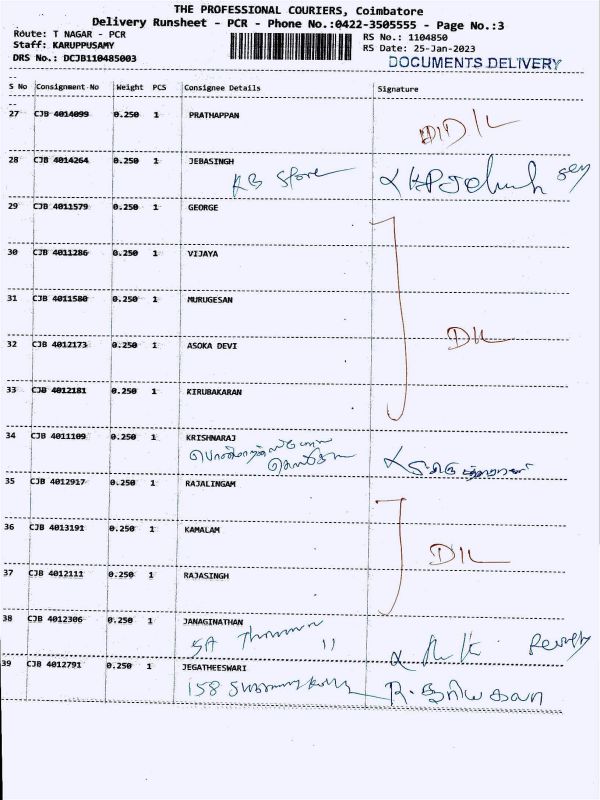 THE PROFESSIONAL COURIERS, Coimbatore
Delivery Runsheet - PCR - Phone No.:0422-3505555 - Page No.:3
Route: T NAGAR - PCR
Staff: KARUPPUSAMY
DRS No.: DCJB110485003
RS No.: 1104850
RS Date: 25-Jan-2023
DOCUMENTS DELIVERY
S No Consignment No Weight PCS Consignee Details Signature
27 CJB 4014099 0.250 1 PRATHAPPAN
28 CJB 4014264 0.250 1 JEBASINGH
KB Store
29 CJB 4011579 0.250 1 GEORGE
30 CJB 4011286 0.250 1 VIJAYA
31 CJB 4011580 0.250 1 MURUGESAN
32 CJB 4012173 0.250 1 ASOKA DEVI
D/L
33 CJB 4012181 0.250 1 KIRUBAKARAN
34 CJB 4011109 0.250 1 KRISHNARAJ
35 CJB 4012917 0.250 1 RAJALINGAM
36 CJB 4013191 0.250 1 KAMALAM
D/L
37 CJB 4012111 0.250 1 RAJASINGH
38 CJB 4012306 0.250 1 JANAGINATHAN
5A
39 CJB 4012791 0.250 1 JEGATHEESWARI
158